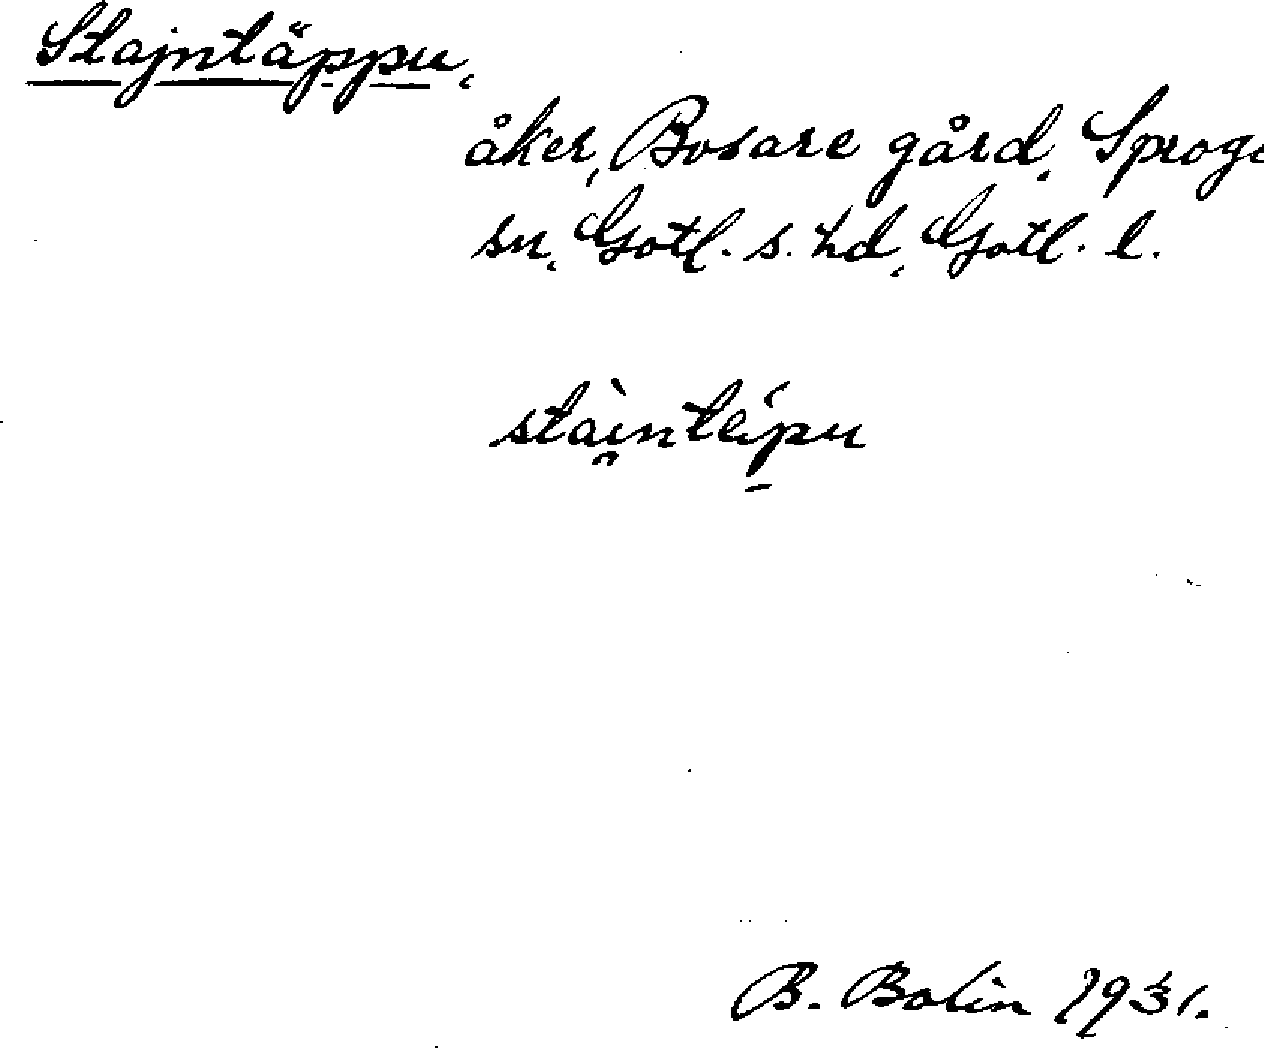 Stajntäppu,
åker, Bosare gård, Sproge
sn, Gotl. s. hd, Gotl. l.
stàinte̢pu
B. Bolin 1931.